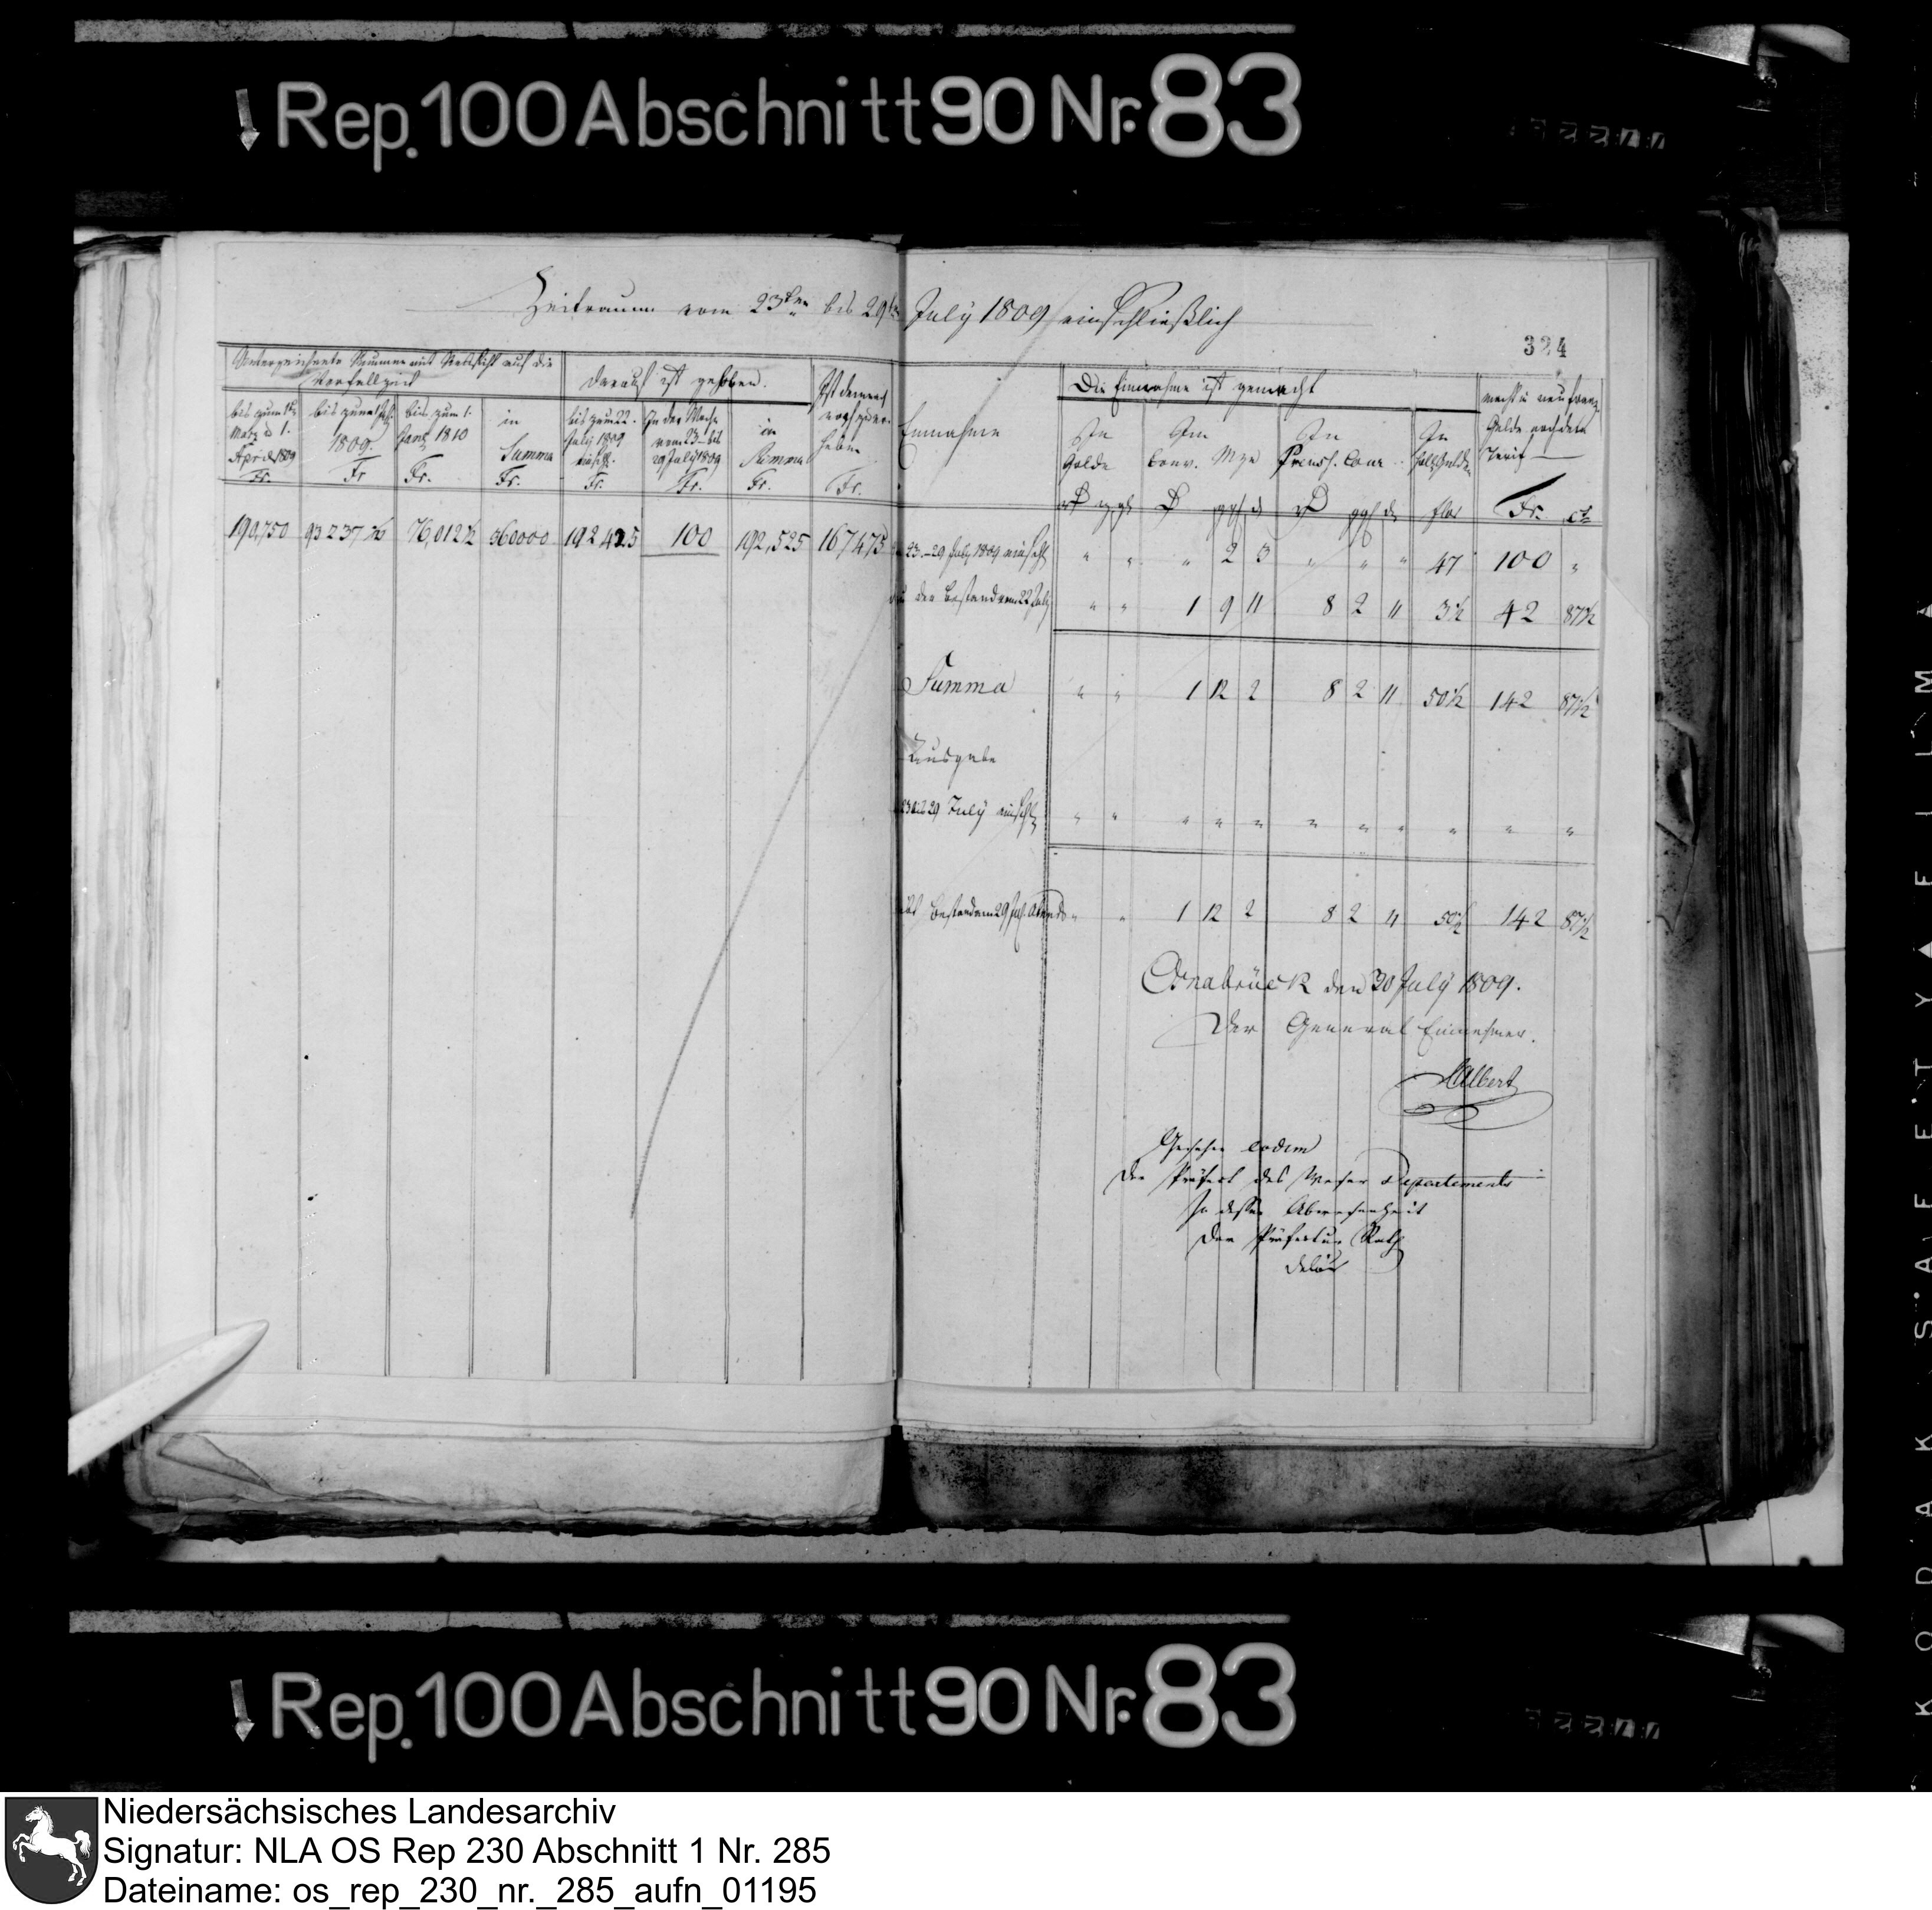 Rep. 100 Abschnitt 90 Nr. 83
Zeitraum vom 23ten bis 29ten July 1809 einschließlich
324
Unterzeichnete Summe mit Rücksicht auf die
Verfallzeit
bis zum 1ten
März u 1.
April 1809
Fr.
bis zum
1809.
Fr
bis zum 1.
Janr 1810
Fr.
in
Summa
Fr.
Darauf ist gehoben.
bis zum 22.
July 1809
einschl.
Fr.
In der Woche
vom 23 - bis
29 July 1809
Fr.
in
Summa
Fr.
Ist demnach
noch zu er-
heben
Fr.
190,750 93237½ 76,012½ 360000 192425 100 192,525 167475
Einnahme
Die Einnahme ist gemacht
In
Golde
In
Conv. Mze
In
Preuss. Cour.
In
holl. Gulden
macht in neu franz.
Gelde nach dem
Tarif
flor Fr. ct
23.-29 July 1809 einschl. " " " 2 3 " " " 47 100 "
der Bestand vom 22 July " " 1 9 11 8 2 11 3½ 42 87½
Summa " " 1 12 2 8 2 11 50½ 142 87½
Ausgabe
23 bis 29 July einschl. " " " " " " " " " " "
Bestand am 29 July Abends " " 1 12 2 8 2 11 50½ 142 87½
Osnabrück den 30 July 1809.
Der General Einnehmer.
Albert
Gesehen eodem
Der Präfect des Weser Departements
In dessen Abwesenheit
Der Präfectur Rath
Rep. 100 Abschnitt 90 Nr. 83
KODAK SAFETY FILM
Niedersächsisches Landesarchiv
Signatur: NLA OS Rep 230 Abschnitt 1 Nr. 285
Dateiname: os_rep_230_nr._285_aufn_01195